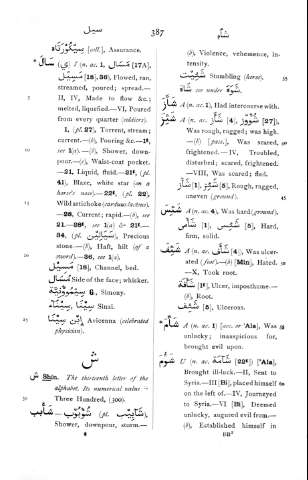 سيل
387
شأم
سِيكُورْتَاه [coll.], Assurance.
سَالَ (ي) I (n. ac. 1, مَسَال [17A],
مَسِيل [18], 36), Flowed, ran,
streamed, poured; spread.—
II, IV, Made to flow &c.;
melted, liquefied.—VI, Poured
from every quarter (visitors).
1, (pl. 27), Torrent, stream;
current.—(b), Pouring &c.—1ᵗ,
see 1(a).—(b), Shower, down-
pour.—(c), Waist-coat pocket.
—21, Liquid, fluid.—21ᵗ, (pl.
41), Blaze, white star (on a
horse's nose).—22ᵗ, (pl. 22),
Wild artichoke (carduus lacteus).
—28, Current; rapid.—(b), see
21.—28ᵗ, see 1(a) & 21ᵗ.—
34, (pl. سَيَالِين), Precious
stone.—(b), Haft, hilt (of a
sword).—36, see 1(a).
مَسِيل [18], Channel, bed.
مَسَال Side of the face; whisker.
Simony.
سِينَاء Sinai.
اِبْن سِينَا Avicenna (celebrated
physician).
ش
ش Shīn. The thirteenth letter of the
alphabet. Its numerical value =
Three Hundred, (300).
شَآبِيب (pl. شُؤْبُوب)
Shower, downpour, storm.—
(b), Violence, vehemence, in-
tensity.
Stumbling (horse).
شَاة see under شَوَه
شَأَزَ A (n. ac. 1), Had intercourse with.
شَئِزَ A (n. ac. شَأَز [4], شُؤُوز [27]),
Was rough, rugged; was high.
—(b) [pass.], Was scared,
frightened.—IV, Troubled,
disturbed; scared, frightened.
—VIII, Was scared; fled.
شَأْز [1], شَئِز [5], Rough, rugged,
uneven (ground).
شَئِسَ A (n. ac. 4), Was hard (ground).
شَأْس [1], شَئِس [5], Hard,
firm, solid.
شَئِفَ A (n. ac. شَأَف [4]), Was ulcer-
ated (foot).—(b) [Min], Hated.
—X, Took root.
شَأْفَة [1ᵗ], Ulcer, imposthume.—
(b), Root.
شَئِف [5], Ulcerous.
شَأَمَ A (n. ac. 1) [acc. or 'Ala], Was
unlucky; inauspicious for,
brought evil upon.
شَؤُمَ U (n. ac. شَآمَة [22ᵗ]) ['Ala],
Brought ill-luck.—II, Sent to
Syria.—III [Bi], placed himself
on the left of.—IV, Journeyed
to Syria.—VI [Bi], Deemed
unlucky, augured evil from.—
(b), Established himself in